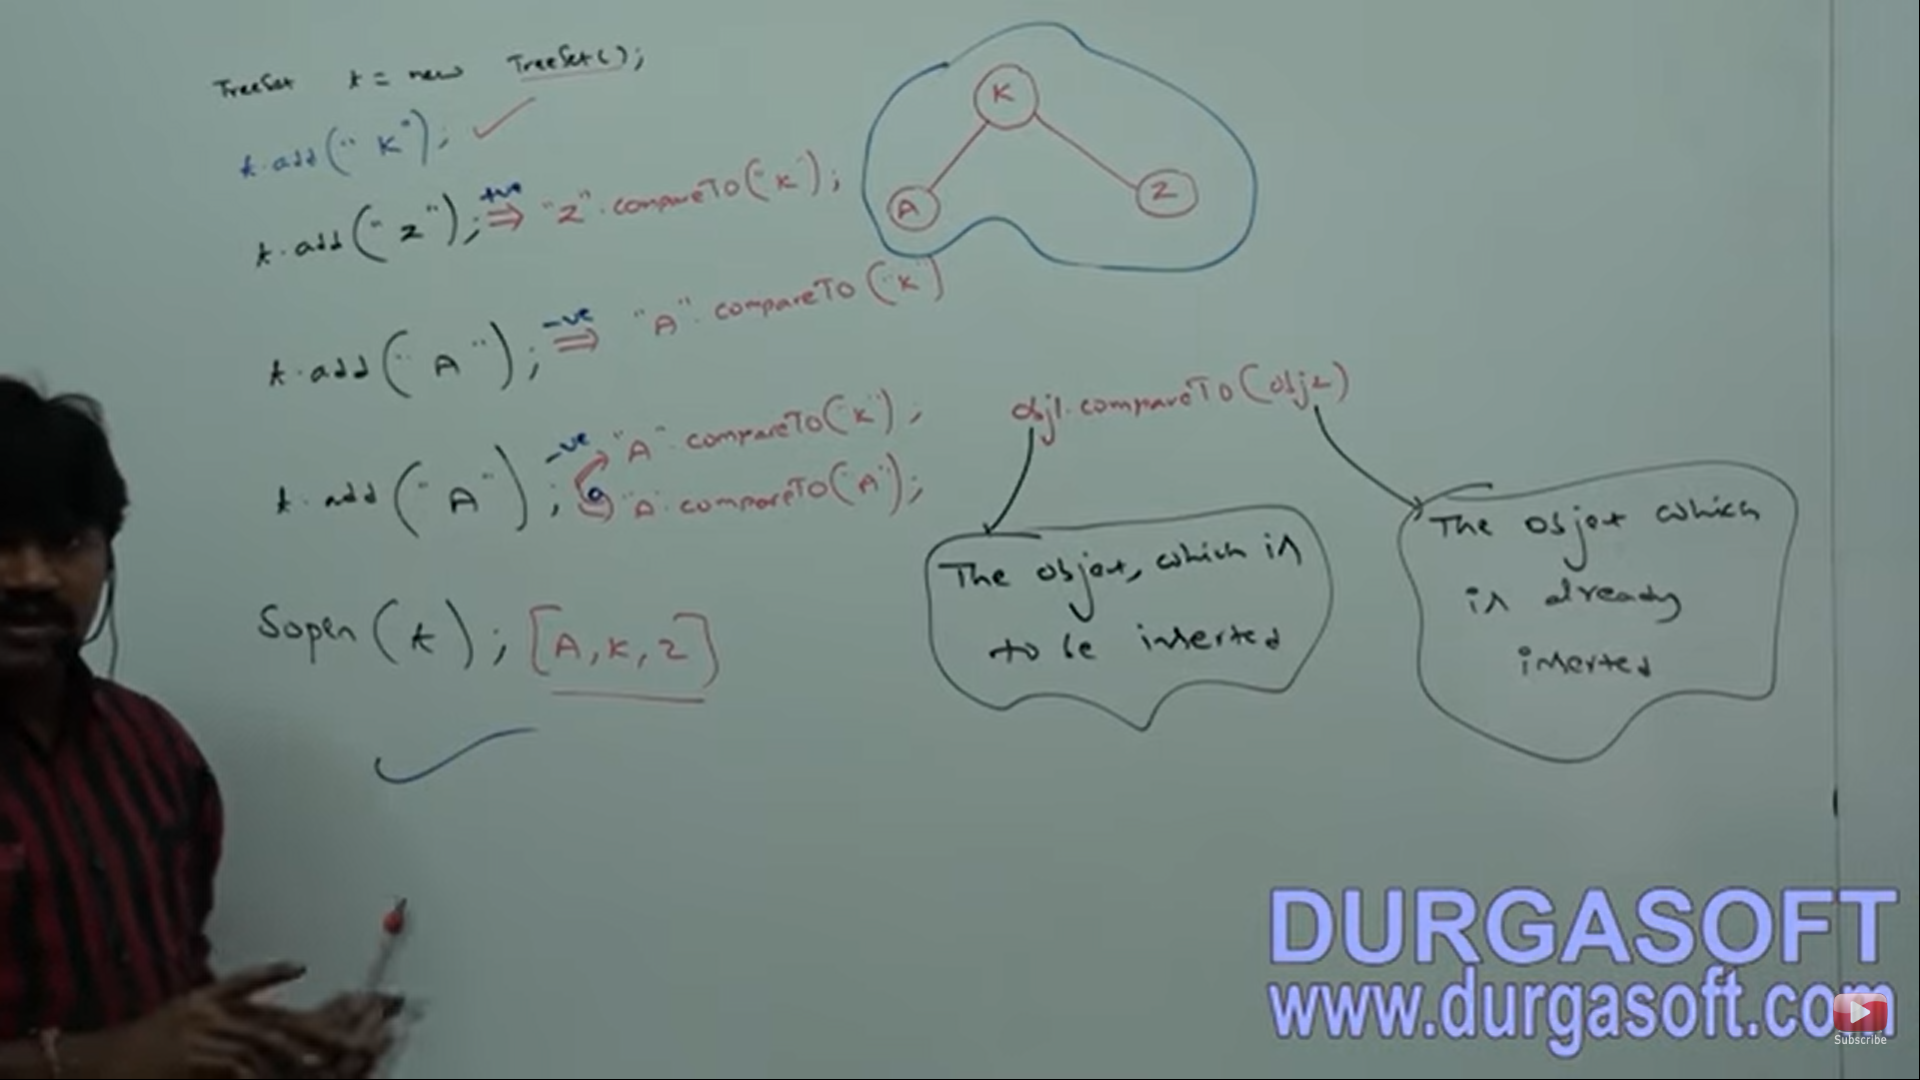 TreeSet t = new TreeSet();
t.add("K");
t.add("Z"); +ve ⇒ "Z".compareTo("K");
t.add("A"); -ve ⇒ "A".compareTo("K")
t.add("A"); -ve "A".compareTo("K");
0 "A".compareTo("A");
Sopln(t); [A, K, Z]
K
A
Z
obj1.compareTo(obj2)
The object, which is
to be inserted
The object which
is already
inserted
DURGASOFT
www.durgasoft.com
Subscribe